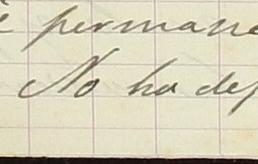 è permane
No ha def